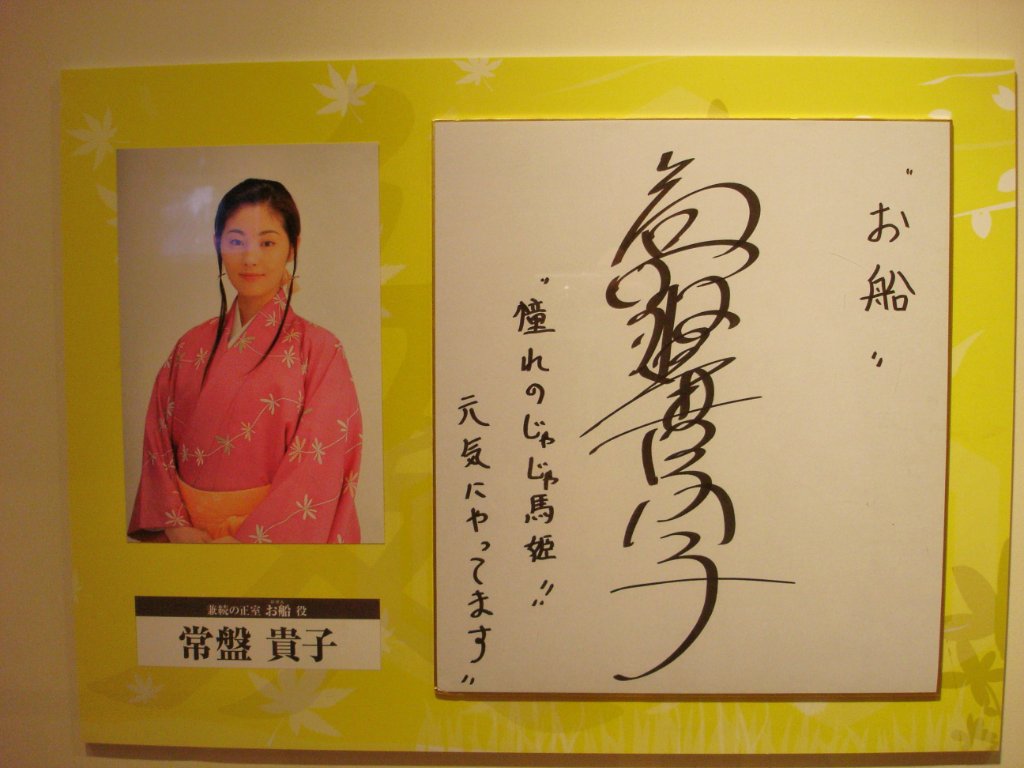 兼続の正室 お船 役
おせん
常盤 貴子
"お船"
常盤貴子
"憧れのじゃじゃ馬姫"
元気にやってます"